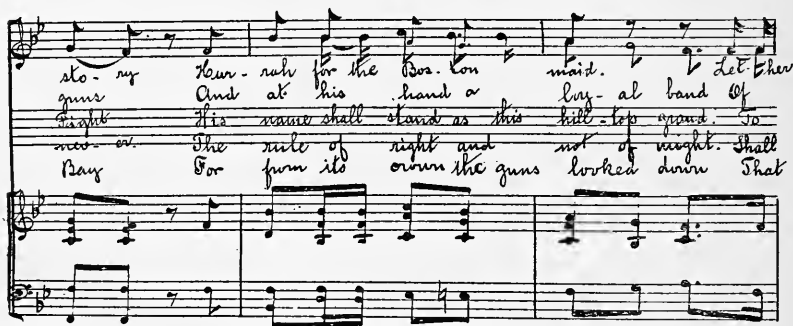 sto- ry Hur- rah for the Bos- ton maid. Let her
guns And at his hand a loy- al band Of
Fight His name shall stand as this hill-top grand: To
nev- er. The rule of right and not of might. Shall
Bay For from its crown the guns looked down That